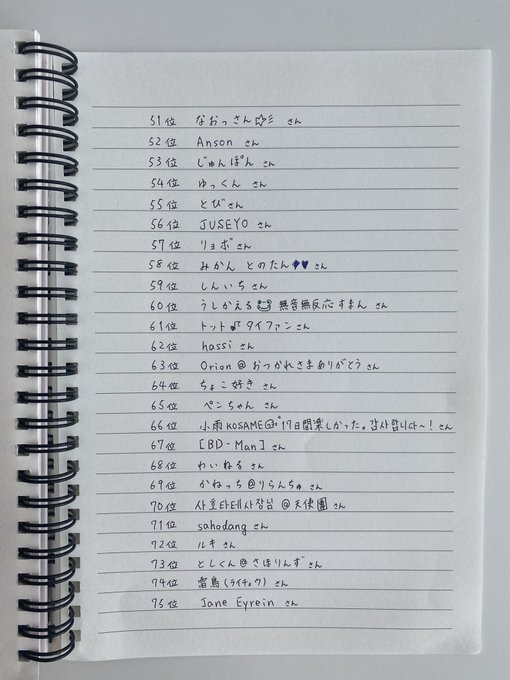 51位 なおっさん☆彡 さん
52位 Anson さん
53位 じゅんぽん さん
54位 ゆっくん さん
55位 とび さん
56位 JUSEYO さん
57位 リョボ さん
58位 みかん とのたん💜💜 さん
59位 しんいち さん
60位 うしかえる🐸 無音無反応 すまん さん
61位 トット♪タイファン さん
62位 hassi さん
63位 Orion @ おつかれさまありがとう さん
64位 ちょこ好き さん
65位 ペンちゃん さん
66位 小雨KOSAME 17日間楽しかった。감사합니다~! さん
67位 [BD-Man] さん
68位 わいねる さん
69位 かねっち@りらんちゅ さん
70位 사호타테사장님 @天使團 さん
71位 sahodang さん
72位 ルキ さん
73位 としくん@さほりんず さん
74位 雷鳥(ライチョウ) さん
75位 Jane Eyrein さん